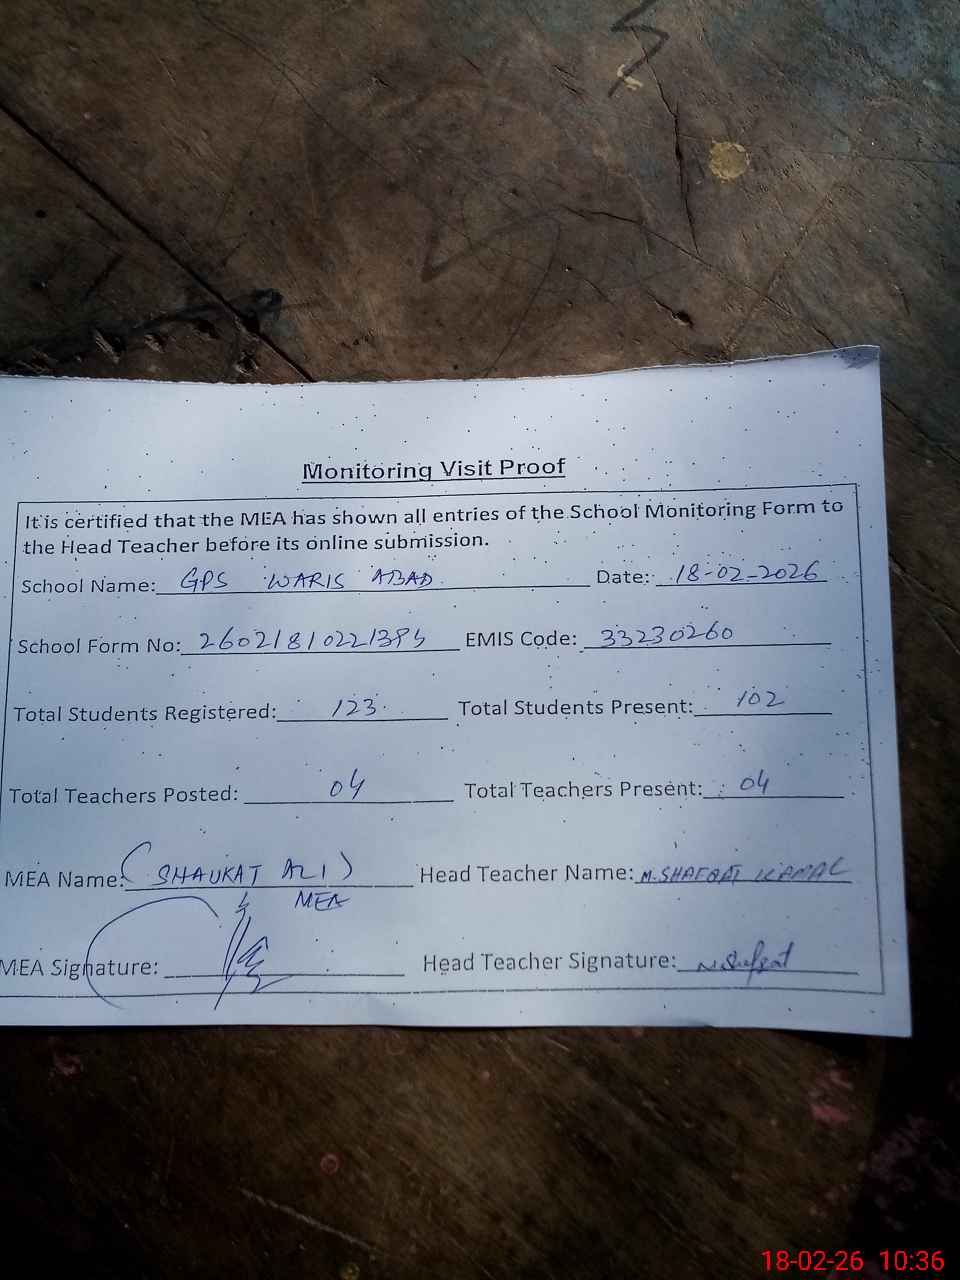 Monitoring Visit Proof
It is certified that the MEA has shown all entries of the School Monitoring Form to
the Head Teacher before its online submission.
School Name: GPS WARIS ABAD. Date: 18-02-2026
School Form No: EMIS Code: 33230260
Total Students Registered: 123 Total Students Present: 102
Total Teachers Posted: 04 Total Teachers Present: 04
MEA Name: (SHAUKAT ALI) Head Teacher Name: M. SHAFQAT KAMAL
MEA
MEA Signature: Head Teacher Signature: M Shafqat
18-02-26 10:36